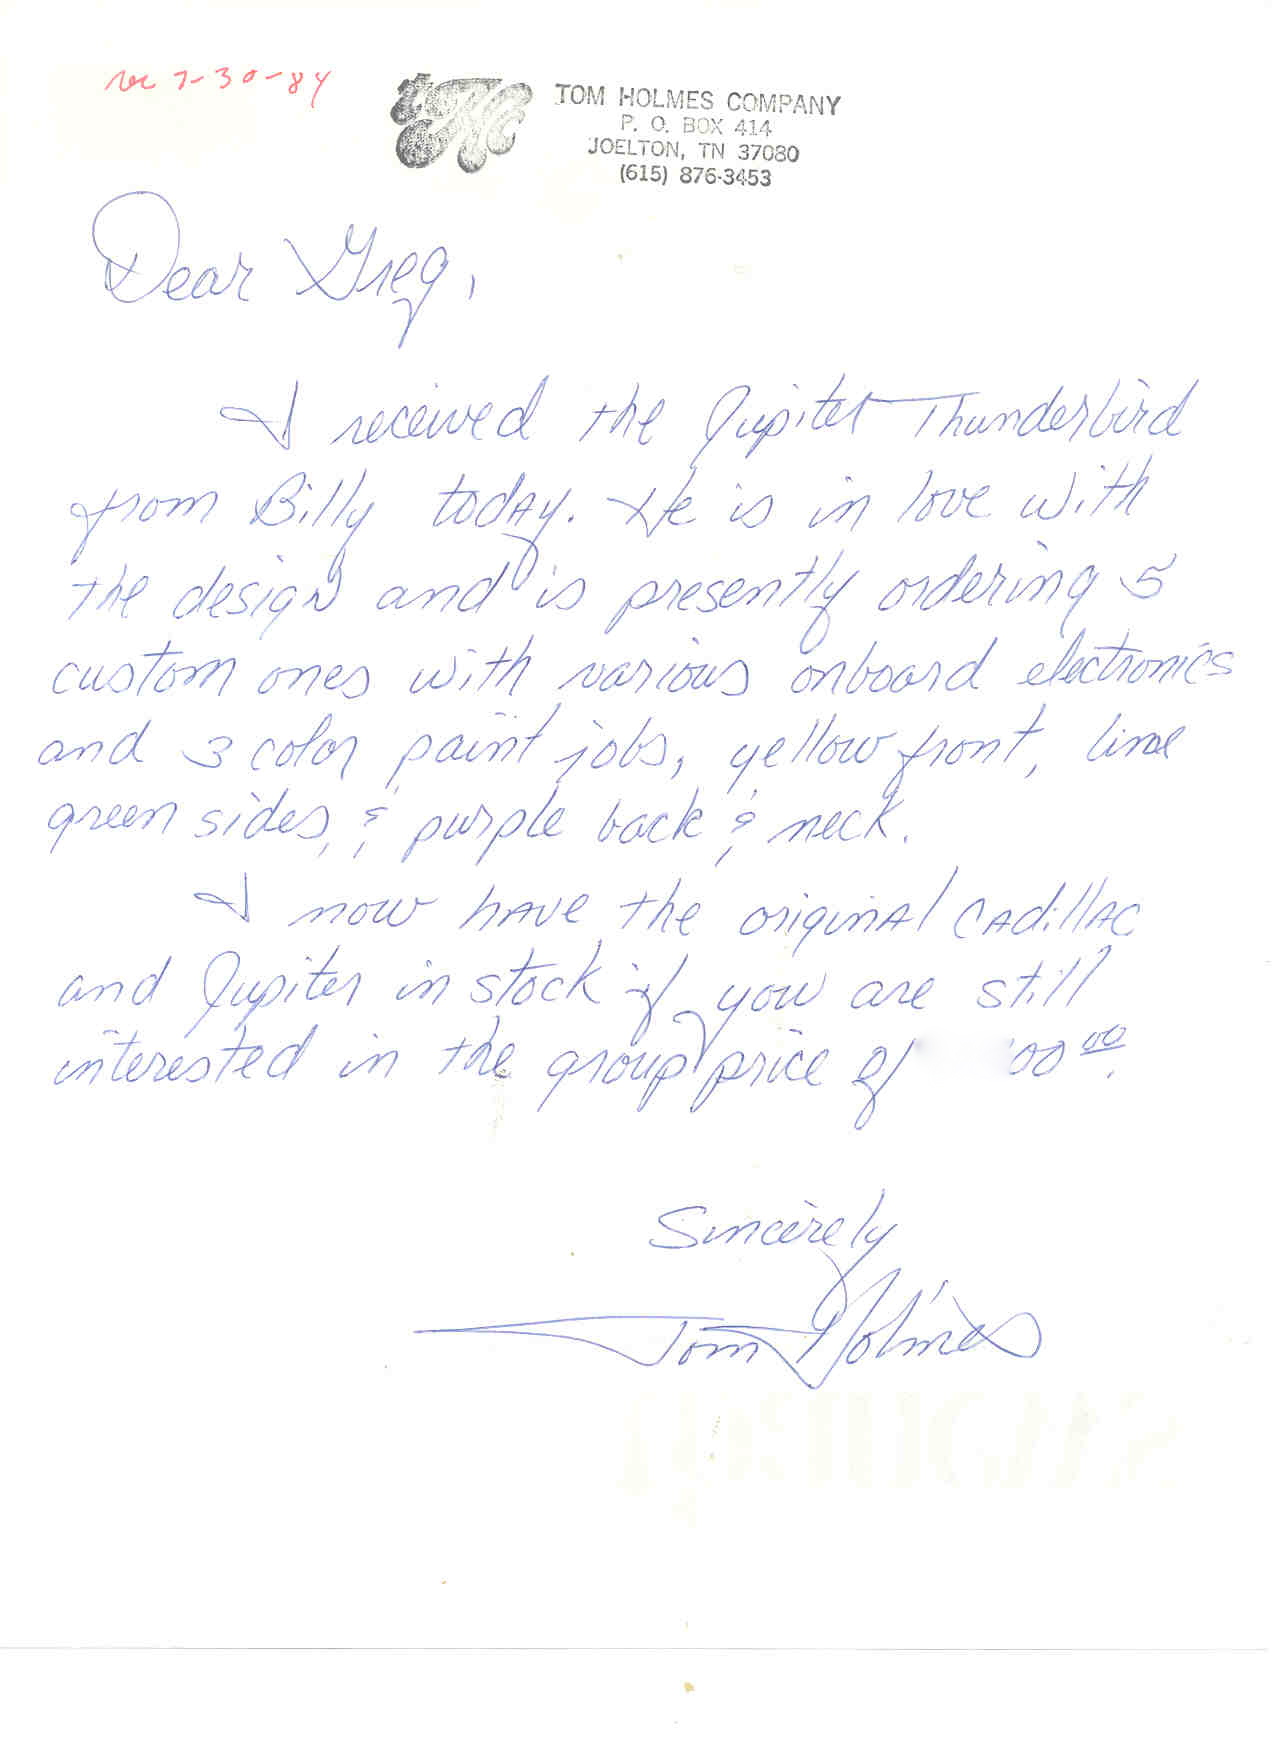 rec 7-30-84
THC
TOM HOLMES COMPANY
P. O. BOX 414
JOELTON, TN 37080
(615) 876-3453
Dear Greg,
I received the Jupiter Thunderbird
from Billy today. He is in love with
the design and is presently ordering 5
custom ones with various onboard electronics
and 3 color paint jobs, yellow front, lime
green sides, & purple back & neck.
I now have the original Cadillac
and Jupiter in stock if you are still
interested in the group price of 00 00.
Sincerely
Tom Holmes